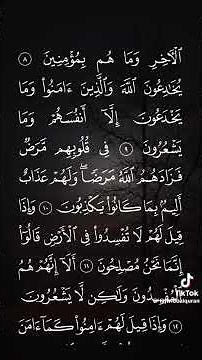 ٱلْـَٔاخِرِ وَمَا هُم بِمُؤْمِنِينَ ٨
يُخَٰدِعُونَ ٱللَّهَ وَٱلَّذِينَ ءَامَنُوا۟ وَمَا
يَخْدَعُونَ إِلَّآ أَنفُسَهُمْ وَمَا
يَشْعُرُونَ ٩ فِى قُلُوبِهِم مَّرَضٌ
فَزَادَهُمُ ٱللَّهُ مَرَضًا ۖ وَلَهُمْ عَذَابٌ
أَلِيمٌۢ بِمَا كَانُوا۟ يَكْذِبُونَ ١٠ وَإِذَا
قِيلَ لَهُمْ لَا تُفْسِدُوا۟ فِى ٱلْأَرْضِ قَالُوٓا۟
إِنَّمَا نَحْنُ مُصْلِحُونَ ١١ أَلَآ إِنَّهُمْ هُمُ
ٱلْمُفْسِدُونَ وَلَٰكِن لَّا يَشْعُرُونَ
١٢ وَإِذَا قِيلَ لَهُمْ ءَامِنُوا۟ كَمَآ ءَامَنَ
TikTok